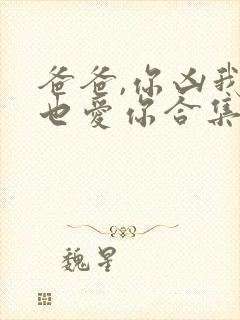 爸爸,你凶我
也爱你合集
魏星